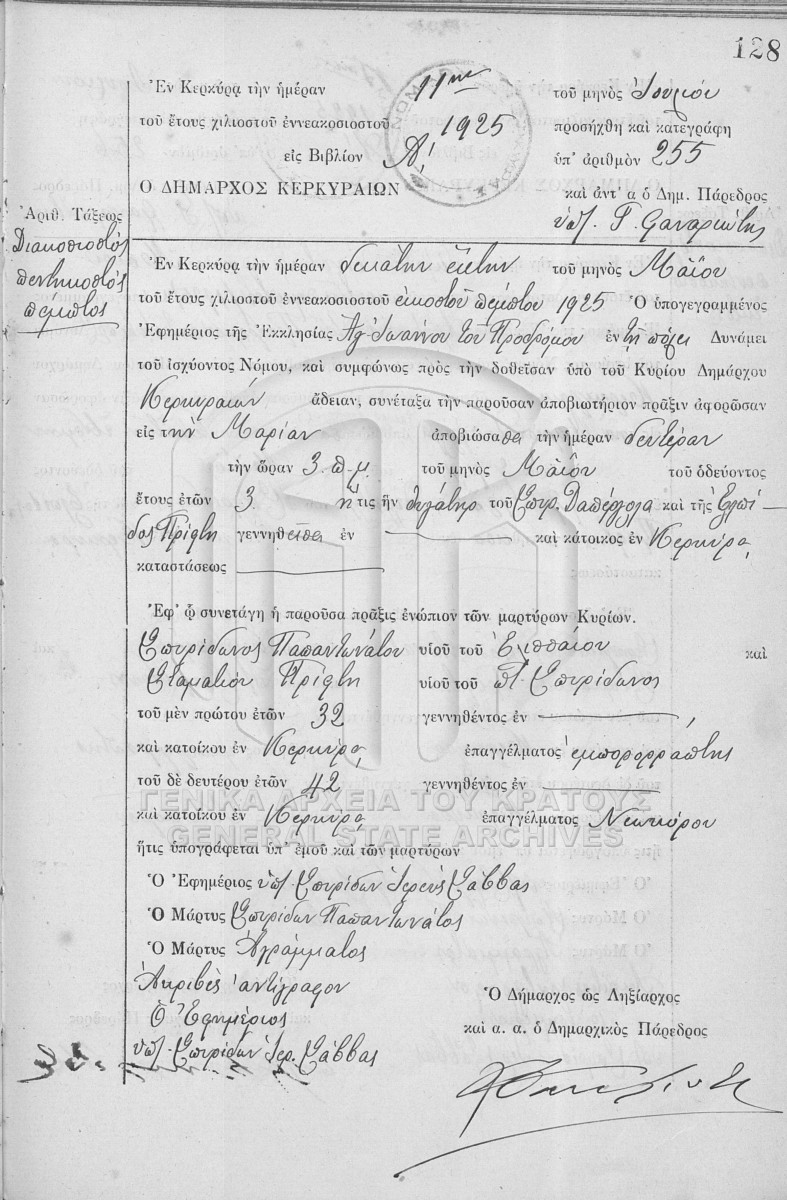 128
Ἐν Κερκύρᾳ τὴν ἡμέραν 11ην τοῦ μηνὸς Ἰουλίου
τοῦ ἔτους χιλιοστοῦ ἐννεακοσιοστοῦ 1925 προσήχθη καὶ κατεγράφη
εἰς Βιβλίον Α! ὑπ' ἀριθμὸν 255
Ο ΔΗΜΑΡΧΟΣ ΚΕΡΚΥΡΑΙΩΝ καὶ ἀντ' α ὁ Δημ. Πάρεδρος
ὑπ. Γ.
Ἀριθ. Τάξεως
Διακοσιοστὸς
πεντηκοστὸς
πέμπτος
Ἐν Κερκύρᾳ τὴν ἡμέραν δεκάτην ἕκτην τοῦ μηνὸς Μαΐου
τοῦ ἔτους χιλιοστοῦ ἐννεακοσιοστοῦ εἰκοστοῦ πέμπτου 1925 Ὁ ὑπογεγραμμένος
Ἐφημέριος τῆς Ἐκκλησίας Ἁγ. Ἰωάννου τοῦ Προδρόμου ἐν τῇ πόλει Δυνάμει
τοῦ ἰσχύοντος Νόμου, καὶ συμφώνως πρὸς τὴν δοθεῖσαν ὑπὸ τοῦ Κυρίου Δημάρχου
Κερκυραίων ἄδειαν, συνέταξα τὴν παροῦσαν ἀποβιωτήριον πρᾶξιν ἀφορῶσαν
εἰς τὴν Μαρίαν ἀποβιώσασα τὴν ἡμέραν δευτέραν
τὴν ὥραν 3. π.μ. τοῦ μηνὸς Μαΐου τοῦ ὁδεύοντος
ἔτους ἐτῶν 3 ἥτις ἦν θυγάτηρ τοῦ Σπυρ. Δαπέργολα καὶ τῆς Ἐλπί
δος Πρίφτη γεννηθεῖσα ἐν καὶ κάτοικος ἐν Κερκύρᾳ
καταστάσεως
Ἐφ' ᾧ συνετάγη ἡ παροῦσα πρᾶξις ἐνώπιον τῶν μαρτύρων Κυρίων.
Σπυρίδωνος Παπαντωνάτου υἱοῦ τοῦ Ἐλισσαίου καὶ
Σταματίου Πρίφτη υἱοῦ τοῦ π. Σπυρίδωνος
τοῦ μὲν πρώτου ἐτῶν 32 γεννηθέντος ἐν
καὶ κατοίκου ἐν Κερκύρᾳ ἐπαγγέλματος ἐμπορορράπτης
τοῦ δὲ δευτέρου ἐτῶν 42 γεννηθέντος ἐν
ΓΕΝΙΚΑ ΑΡΧΕΙΑ ΤΟΥ ΚΡΑΤΟΥΣ
καὶ κατοίκου ἐν Κερκύρᾳ ἐπαγγέλματος Νεωκόρου
GENERAL STATE ARCHIVES
ἥτις ὑπογράφεται ὑπ' ἐμοῦ καὶ τῶν μαρτύρων
Ὁ Ἐφημέριος ὑπ. Σπυρίδων Ἱερεὺς Σάββας
Ὁ Μάρτυς Σπυρίδων Παπαντωνάτος
Ὁ Μάρτυς Ἀγράμματος
Ἀκριβὲς ἀντίγραφον
Ὁ Ἐφημέριος
ὑπ. Σπυρίδων Ἱερ. Σάββας
Ὁ Δήμαρχος ὡς Ληξίαρχος
καὶ α. α. ὁ Δημαρχικὸς Πάρεδρος